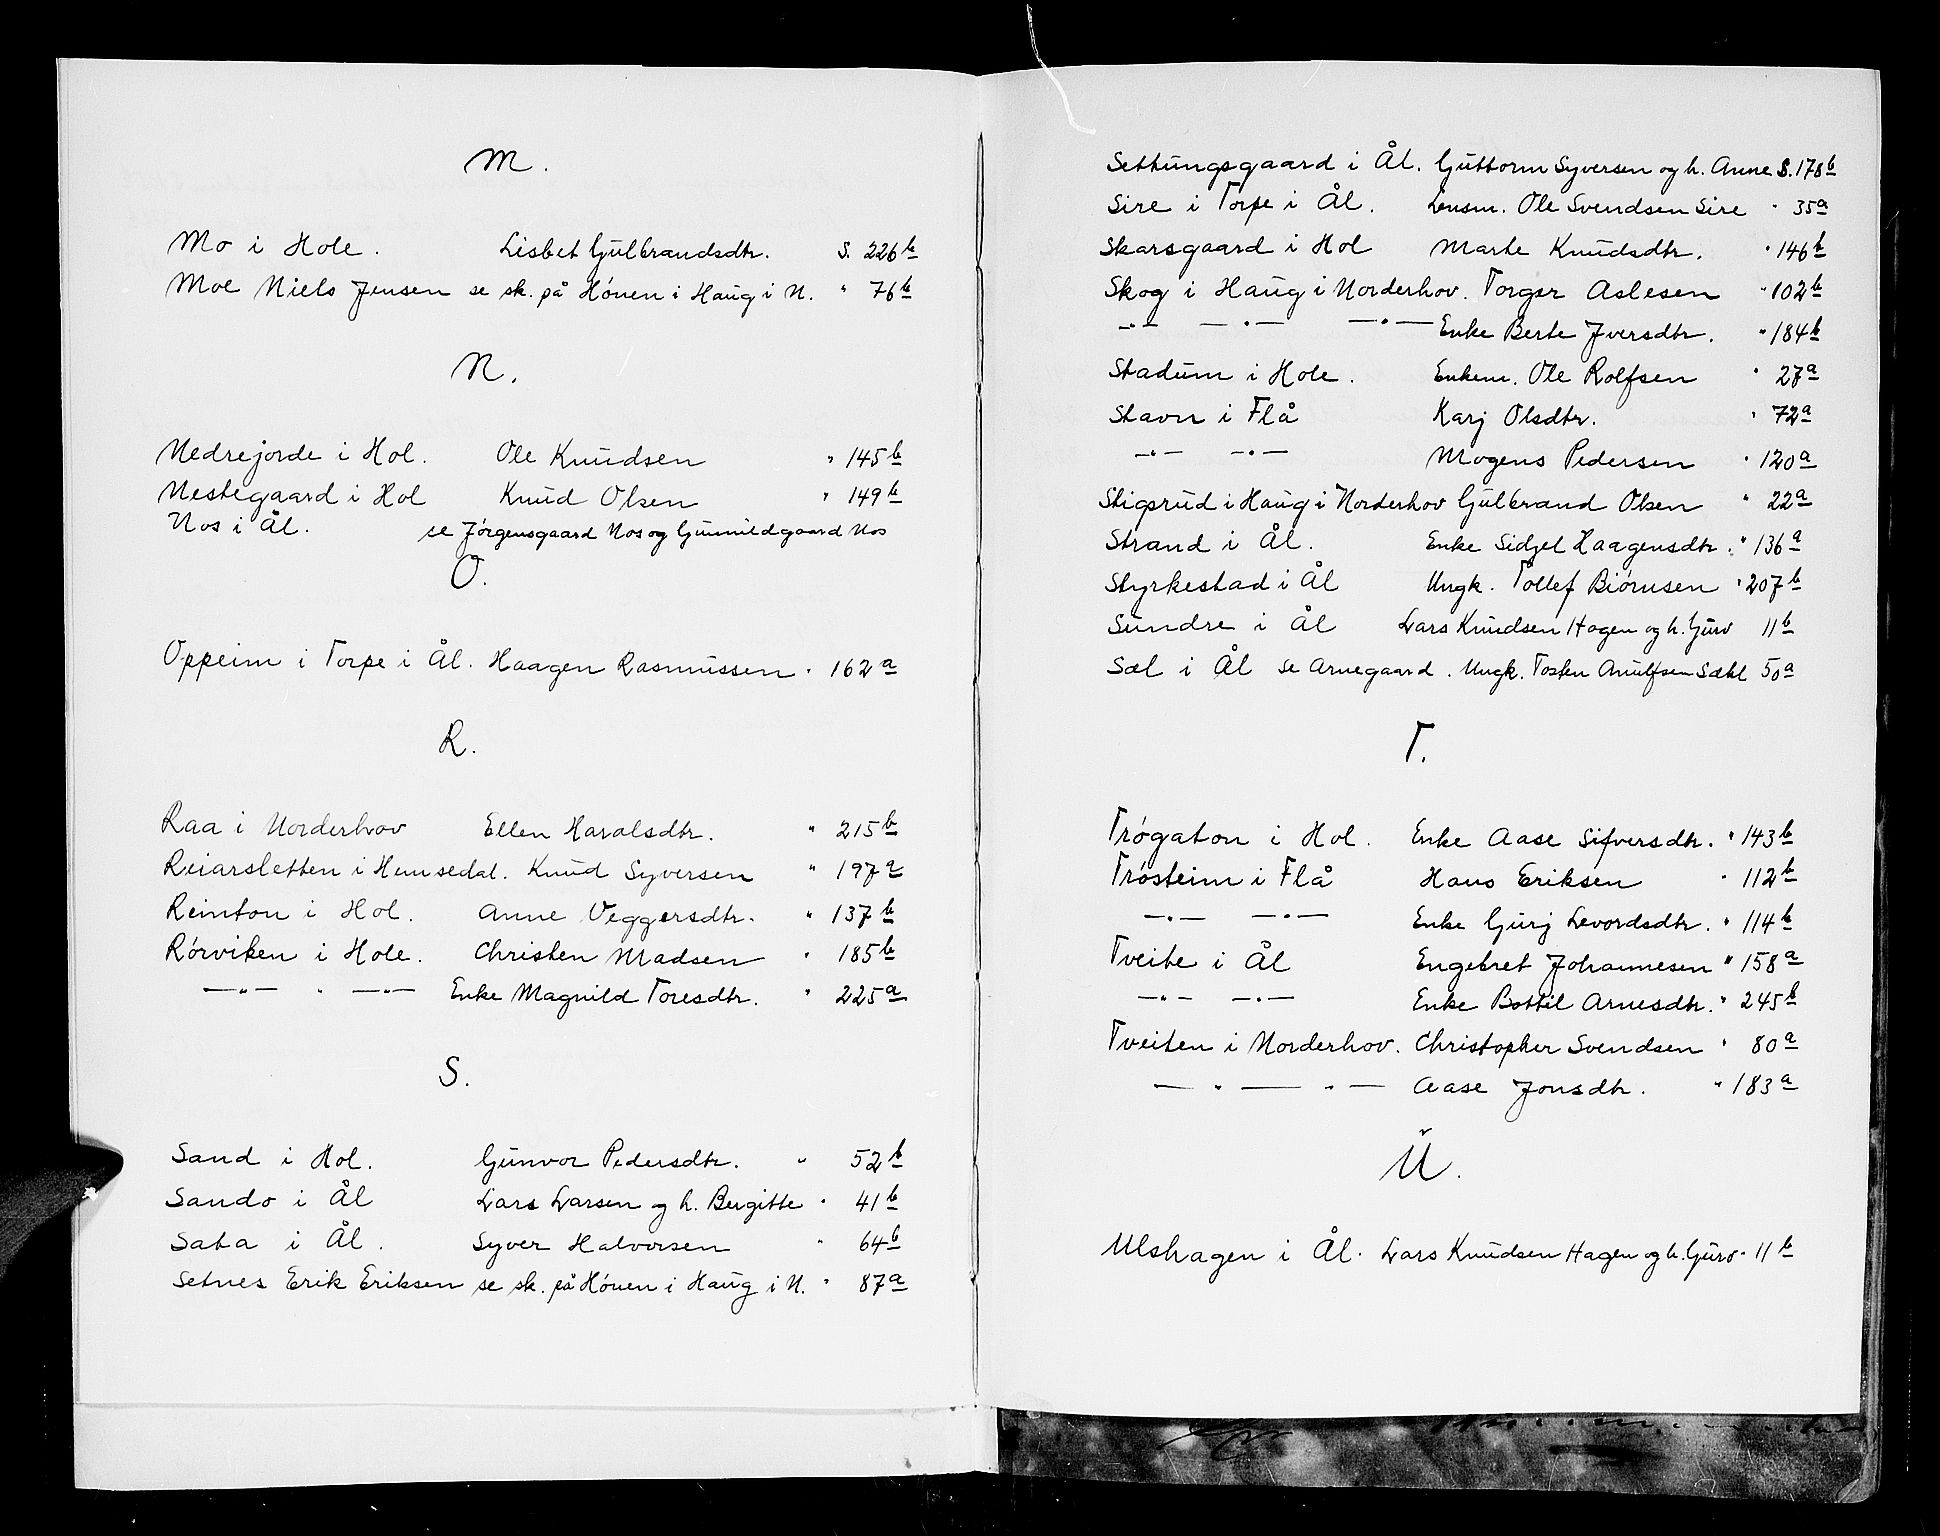 M.
Mo i Hole. Lisbet Gulbrandsdtr. S. 226b
Moe Niels Jensen se sk. på Hónen i Haug i N. " 76b
N.
Nedrejorde i Hol. Ole Knudsen " 145b
Nestegaard i Hol Knud Olsen " 149b
Nos i Ål. se Jórgensgaard Nos og Gunnildgaard Nos
O.
Oppeim i Torpe i Ål. Haagen Rasmussen " 162a
R.
Raa i Norderhov Ellen Haralsdtr. " 215b
Reiarsletten i Hemsedal. Knud Syversen " 197a
Reinton i Hol. Anne Veggersdtr. " 137b
Rórviken i Hole. Christen Madsen " 185b
—"— " —"— Enke Magnild Toresdtr. " 225a
S.
Sand i Hol. Gunvor Pedersdtr. " 52b
Sando i Ål Lars Larsen og h. Bergitte " 41b
Sata i Ål. Syver Halvorsen " 64b
Setnes Erik Eriksen se sk. på Hónen i Haug i N. " 87a
Settungsgaard i Ål. Guttorm Syversen og h. Anne S. 178b
Sire i Torpe i Ål. Lensm. Ole Svendsen Sire " 35a
Skarsgaard i Hol Marte Knudsdtr. " 146b
Skog i Haug i Norderhov. Torger Aslesen " 102b
—"— —"— —"— Enke Berte Jversdtr. " 184b
Stadum i Hole. Enkem. Ole Rolfsen " 27a
Stavn i Flå Karj Olsdtr. " 72a
—"— —"— Mogens Pedersen " 120a
Stigsrud i Haug i Norderhov Gulbrand Olsen " 22a
Strand i Ål. Enke Sidzel Haagensdtr. " 136a
Styrkestad i Ål Ungk. Tollef Biórnsen " 207b
Sundre i Ål Lars Knudsen Hagen og h. Guro 11b
Sæl i Ål se Arnegaard. Ungk. Tosten Anulfsen Sæhl 50a
T.
Trógaton i Hol. Enke Aase Sifversdtr. " 143b
Trósteim i Flå Hans Eriksen " 112b
—"— —"— Enke Gurj Levordsdtr. " 114b
Tveite i Ål Engebret Johannesen " 158a
—"— —"— Enke Bottil Arnesdtr. " 245b
Tveiten i Norderhov. Christopher Svendsen " 80a
— " — " — Aase Jonsdtr. " 183a
U.
Ulshagen i Ål. Lars Knudsen Hagen og h. Guro " 11b